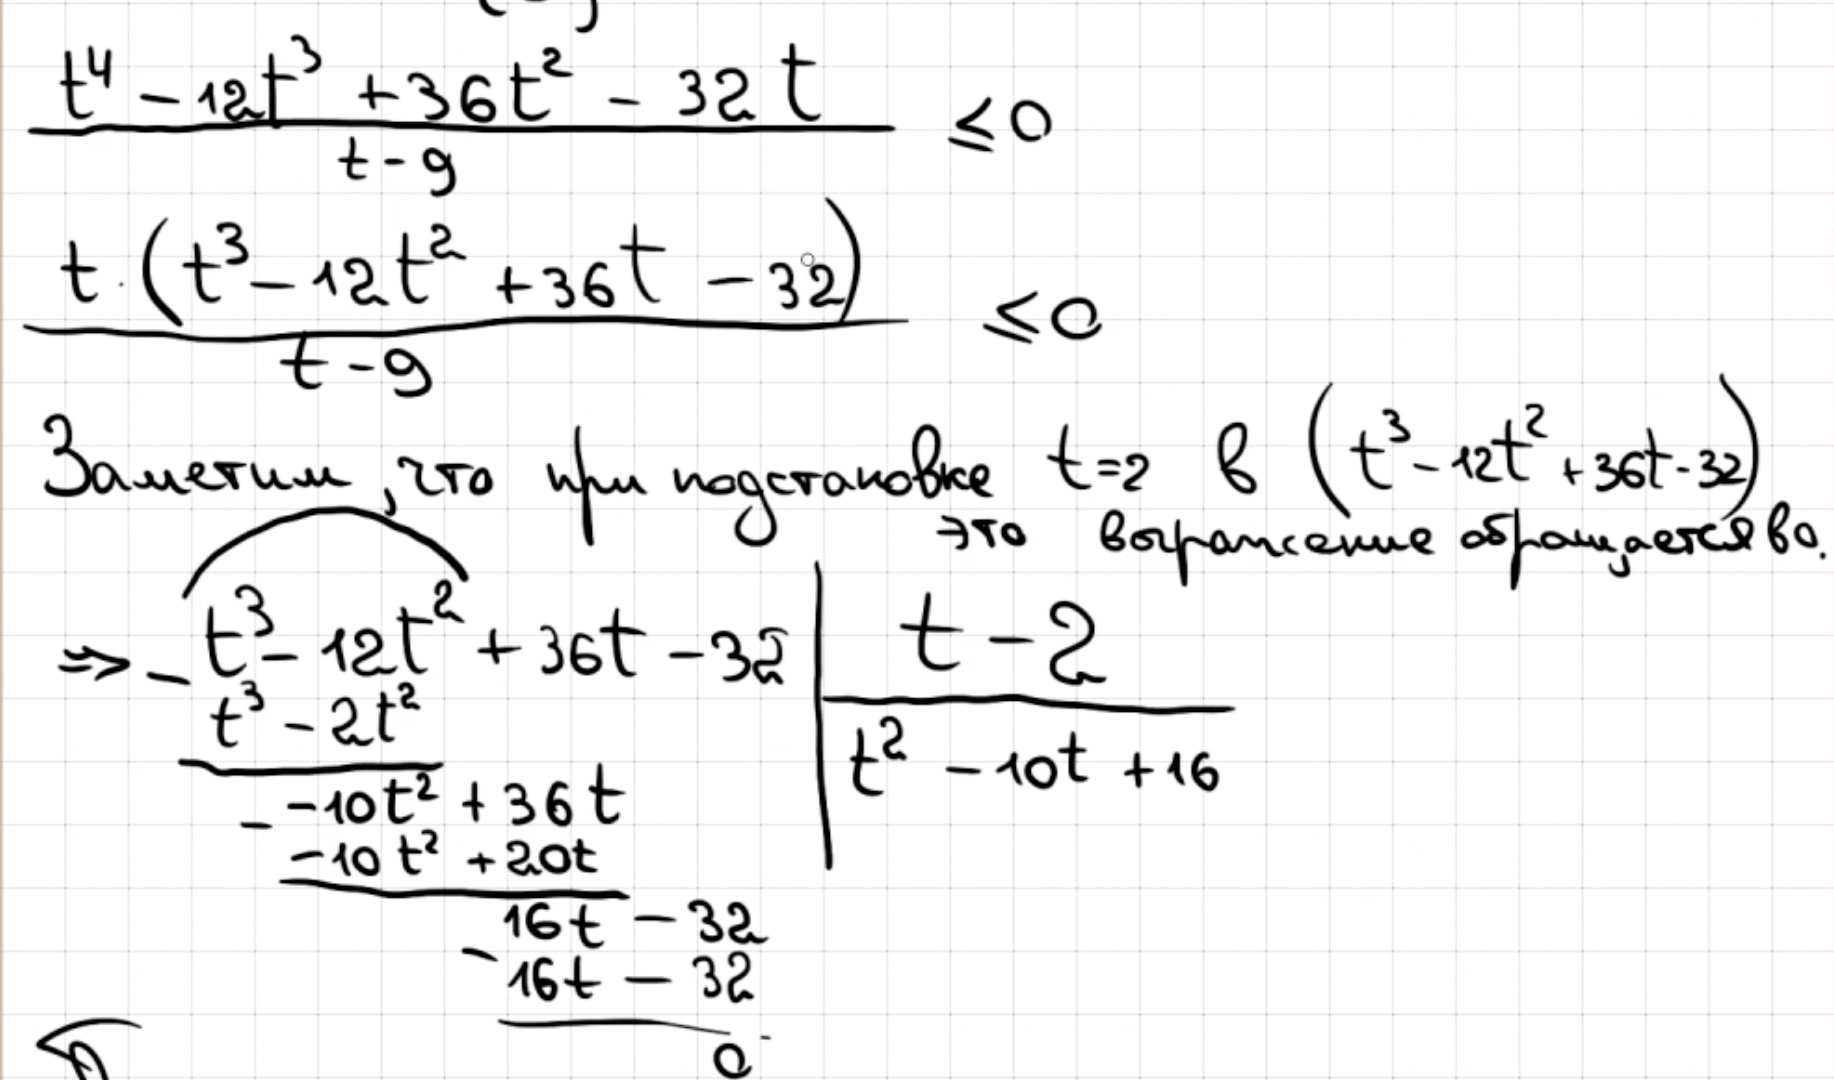 t⁴ - 12t³ + 36t² - 32t ≤ 0
t - 9
t · (t³ - 12t² + 36t - 32) ≤ 0
t - 9
Заметим, что при подстановке t=2 в (t³ - 12t² + 36t - 32)
это выражение обращается в 0.
⇒ - t³ - 12t² + 36t - 32 | t - 2
t³ - 2t²
t² - 10t + 16
- -10t² + 36t
-10t² + 20t
16t - 32
- 16t - 32
0